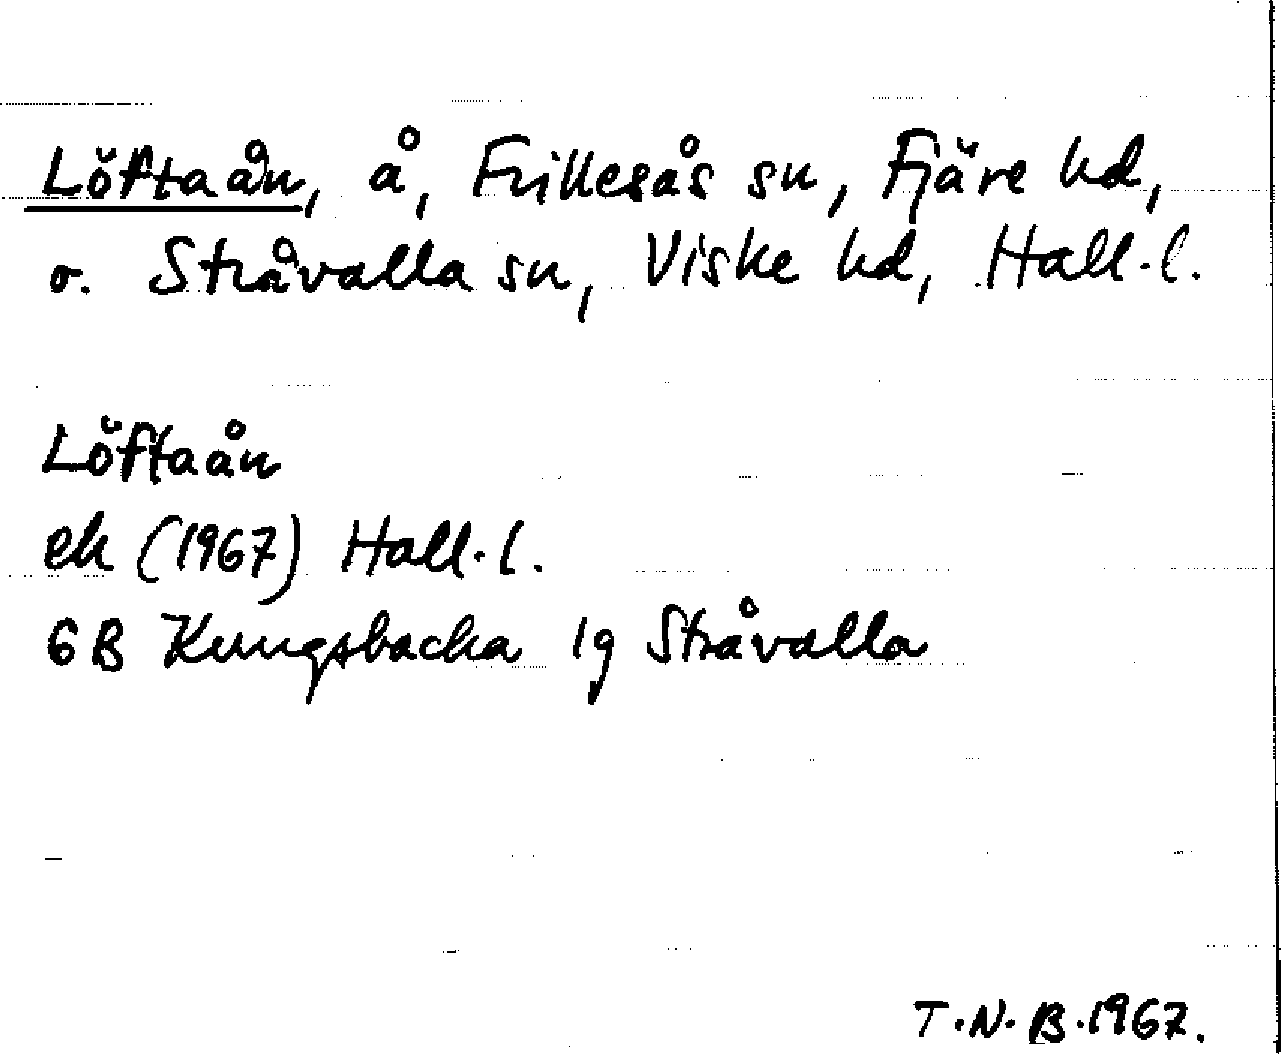 Löftaån, å, Frillesås sn, Fjäre hd,
o. Stråvalla sn, Viske hd, Hall. l.
Löftaån
ek (1967) Hall. l.
6B Kungsbacka 1g Stråvalla
T.N.B. 1967.